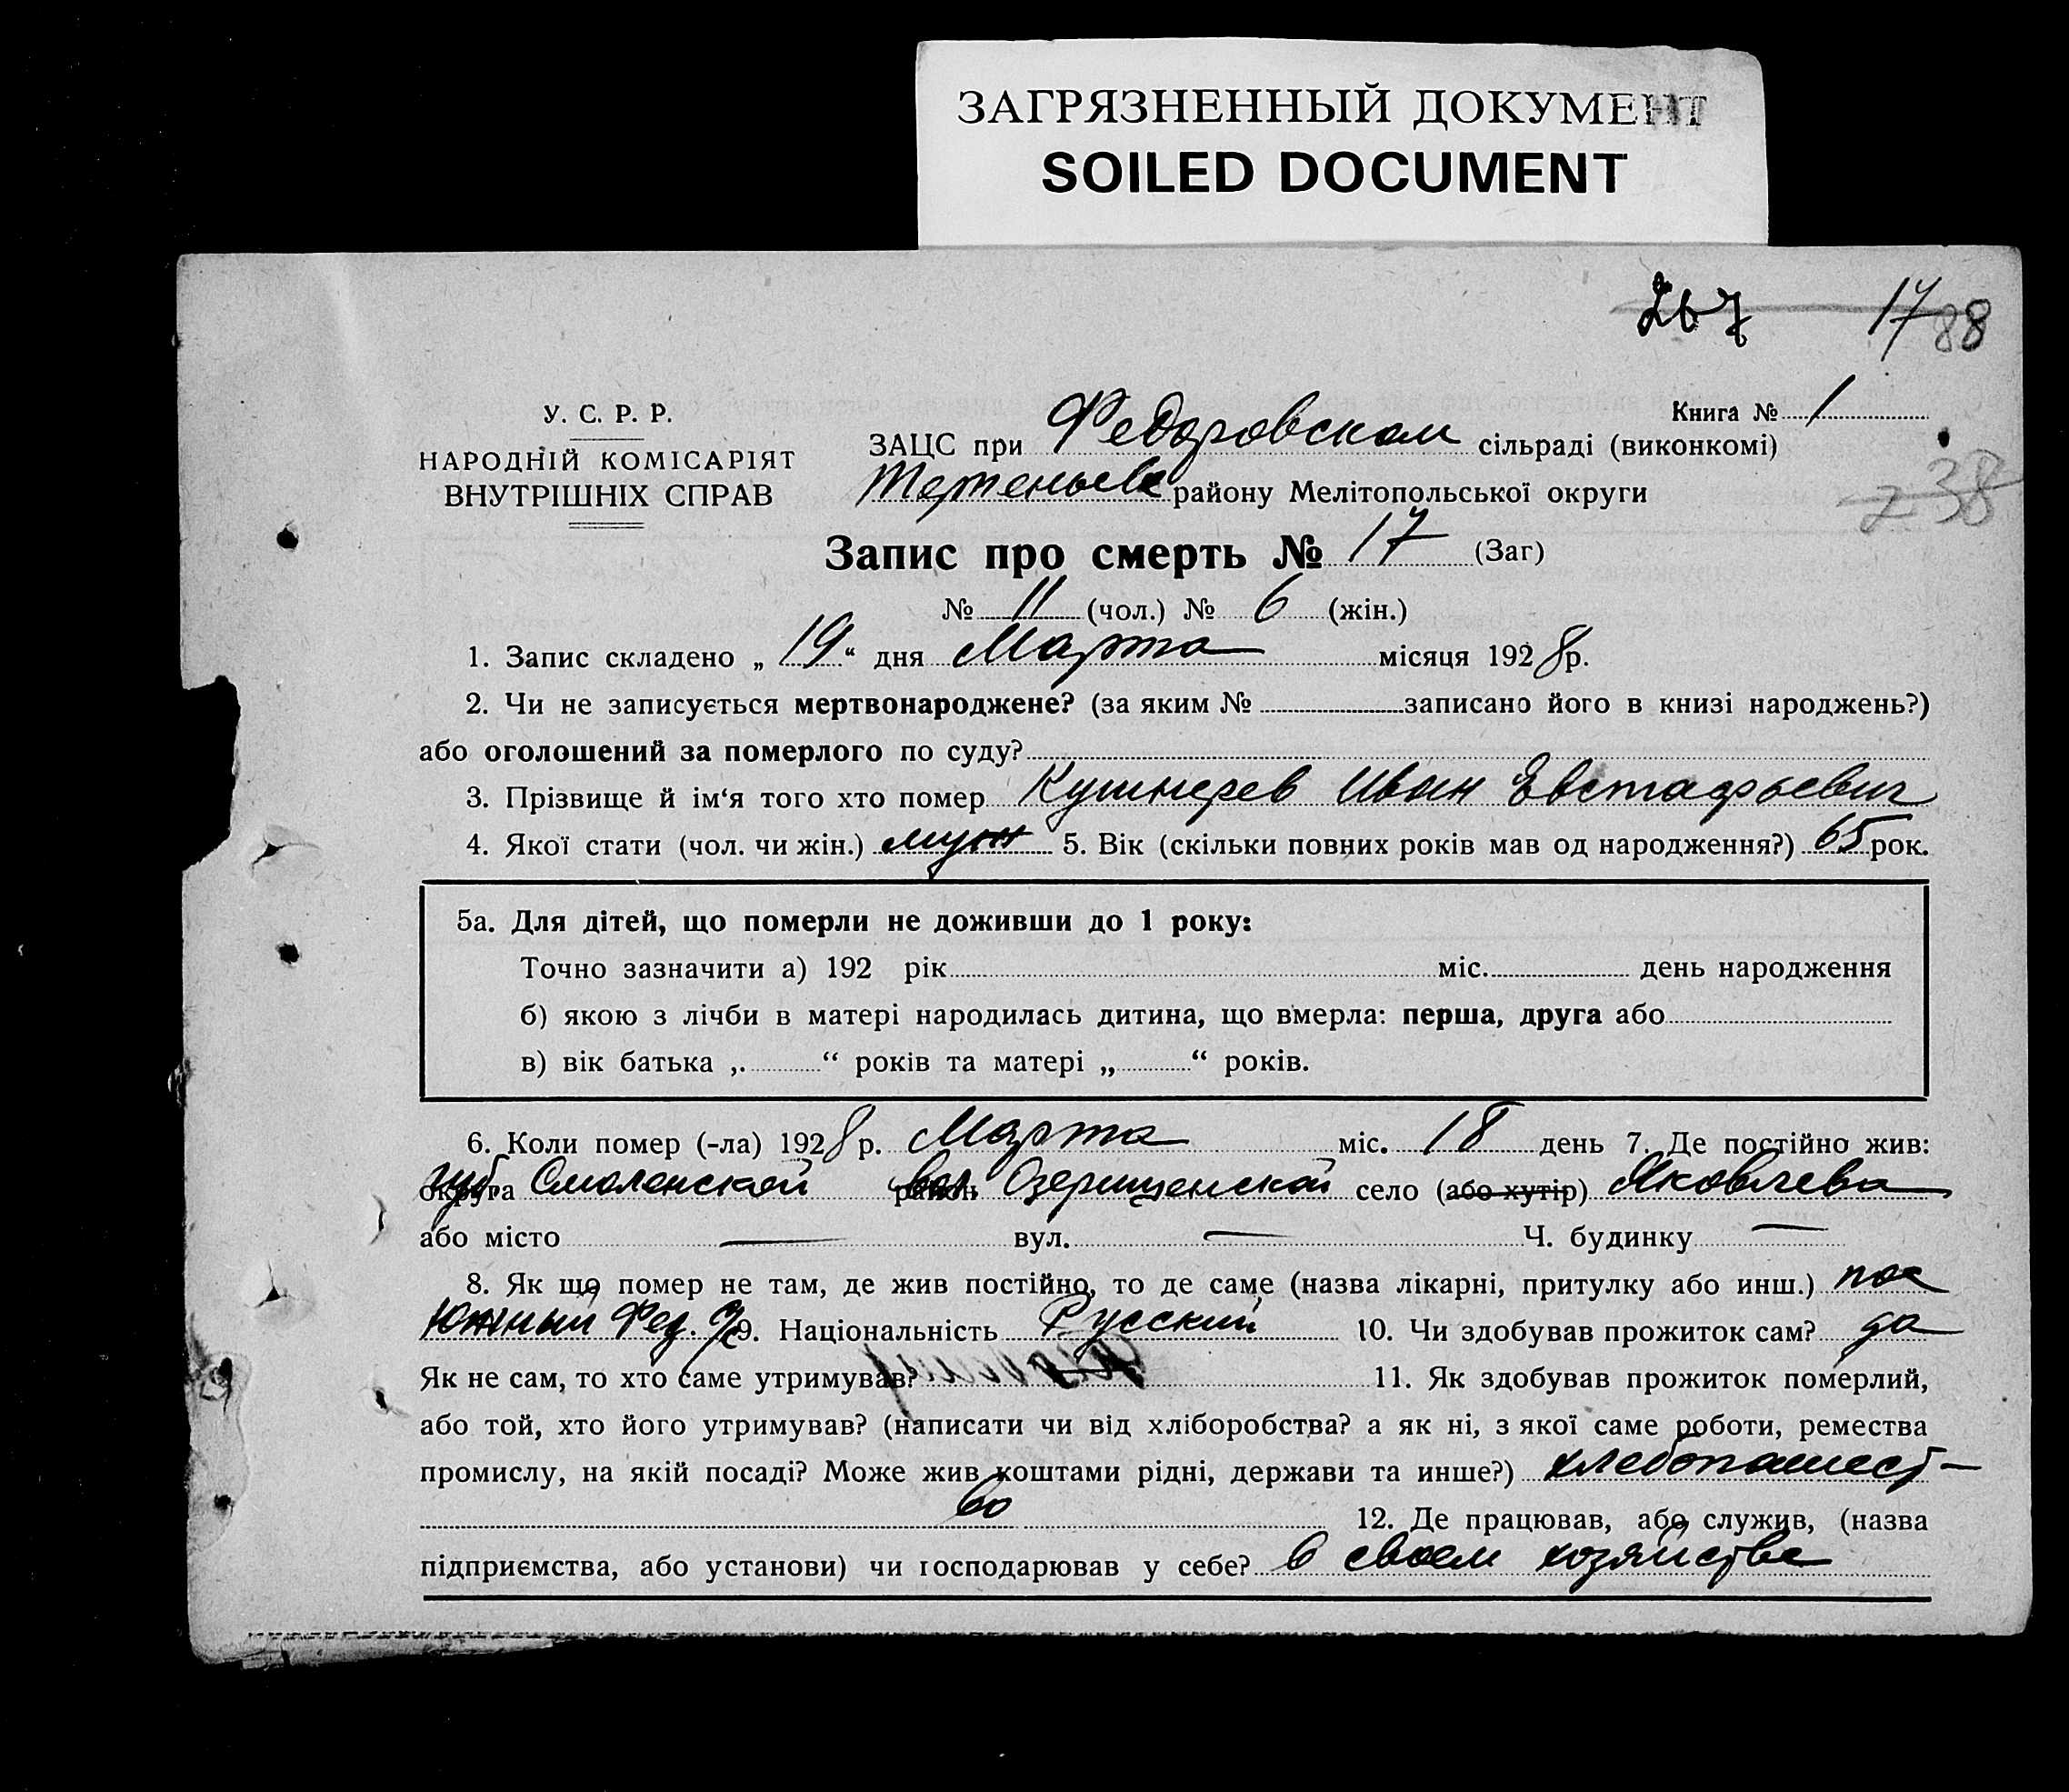 ЗАГРЯЗНЕННЫЙ ДОКУМЕНТ
SOILED DOCUMENT
267 17 88
У. С. Р. Р.
НАРОДНІЙ КОМІСАРІЯТ
ВНУТРІШНІХ СПРАВ
Книга № 1
ЗАЦС при Федоровском сільраді (виконкомі)
району Мелітопольської округи
238
Запис про смерть № 17 (Заг)
№ 11 (чол.) № 6 (жін.)
1. Запис складено „ 19 “ дня Марта місяця 1928 р.
2. Чи не записується мертвонароджене? (за яким № записано його в книзі народжень?)
або оголошений за померлого по суду?
3. Прізвище й ім‘я того хто помер Кушнерев Иван Евстафьевич
4. Якої стати (чол. чи жін.) муж 5. Вік (скільки повних років мав од народження?) 65 рок.
5а. Для дітей, що померли не доживши до 1 року:
Точно зазначити а) 192 рік міс. день народження
б) якою з лічби в матері народилась дитина, що вмерла: перша, друга або
в) вік батька „ “ років та матері „ “ років.
6. Коли помер (-ла) 1928 р. Марта міс. 18 день 7. Де постійно жив:
округа губ. Смоленской район вол. Озерищенской село (або хутір) Яковлева
або місто — вул. — Ч. будинку —
8. Як що помер не там, де жив постійно, то де саме (назва лікарні, притулку або инш.) пос
Южный Фед. с/с 9. Національність Русский 10. Чи здобував прожиток сам? да
Як не сам, то хто саме утримував? 11. Як здобував прожиток померлий,
або той, хто його утримував? (написати чи від хліборобства? а як ні, з якої саме роботи, ремества
промислу, на якій посаді? Може жив коштами рідні, держави та инше?) хлебопашест-
во 12. Де працював, або служив, (назва
підприємства, або установи) чи господарював у себе? в своем хозяйстве